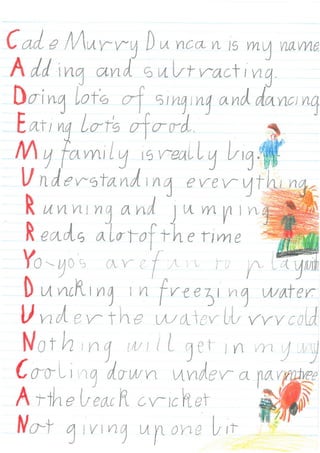 Cade Murry Duncan is my name
Adding and subtracting.
Doing lot's of singing and dancing
Eating lot's ofood.
My family is really big.
Understanding everything
Running and jumping
Reads alotofthetime
Yo-yo's are fun to play with
Duncking in freezing water
Under the water brrrcold
Nothing will get in my way
Cooling down under a palm tree
At the beach cricket
Not giving up one bit